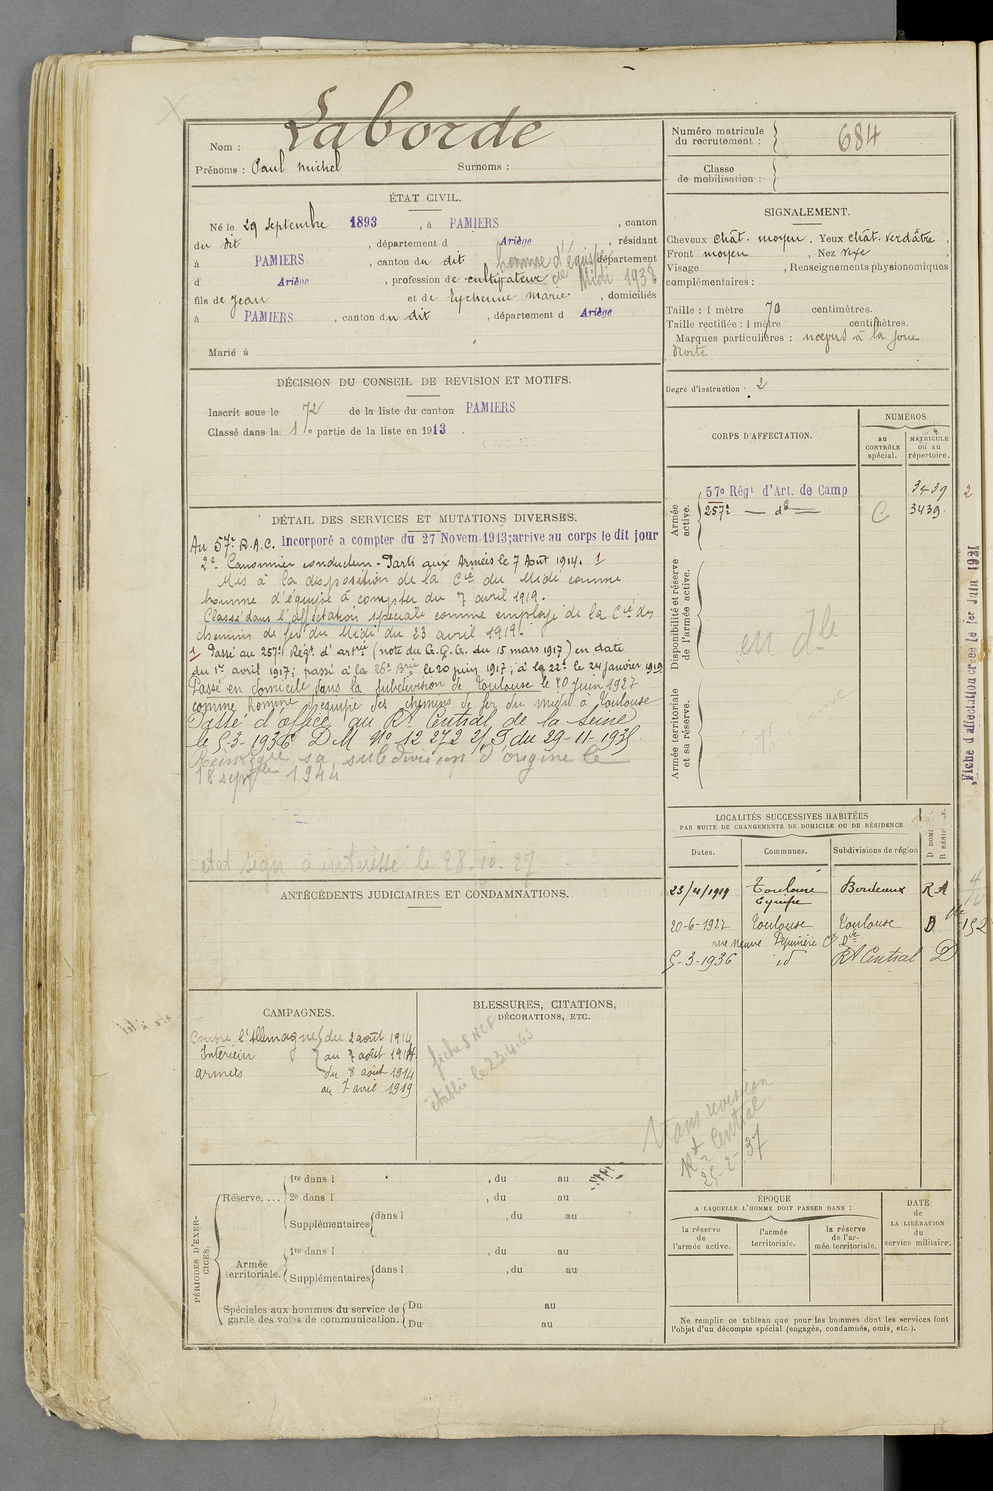 Nom : Laborde
Prénoms : Paul Michel Surnoms :
ÉTAT CIVIL.
Né le 29 septembre 1893, à PAMIERS, canton
du dit, département d Ariège, résidant
à PAMIERS, canton du dit, département
d Ariège, profession de cultivateur homme d'équipe Midi 1938
fils de Jean et de Eychenne Marie, domiciliés
à PAMIERS, canton du dit, département d Ariège
Marié à
DÉCISION DU CONSEIL DE REVISION ET MOTIFS.
Inscrit sous le 72 de la liste du canton PAMIERS
Classé dans la 1re partie de la liste en 1913.
DÉTAIL DES SERVICES ET MUTATIONS DIVERSES.
Au 57e R.A.C. Incorporé a compter du 27 Novem. 1913; arrive au corps le dit jour
2e Canonnier conducteur - Parti aux Armées le 7 Août 1914. 1
Mis à la disposition de la Cie du Midi comme
homme d'équipe à compter du 7 avril 1919.
Classé dans l'affectation spéciale comme employé de la Cie des
chemins de fer du Midi du 23 avril 1919.
1 Passé au 257e Régt d'artie (note du G.Q.G. du 15 mars 1917) en date
du 1er avril 1917; passé à la 26e Brie le 20 juin 1917; à la 22e le 24 janvier 1919
Passé en domicile dans la subdivision de Toulouse le 20 Juin 1927
comme homme d'équipe des chemins de fer du midi à Toulouse
Passé d'office au Rt Central de la Seine
le 5-3-1936 DM No 12 272 2/S du 29-11-1935
Réintègre sa subdivision d'origine le
18 septbre 1944
état sign. à intéressé le 28.10.27
ANTÉCÉDENTS JUDICIAIRES ET CONDAMNATIONS.
CAMPAGNES.
Contre l'Allemagne du 2 août 1914
Intérieur au 7 août 1914
armées du 8 août 1914
au 7 avril 1919
BLESSURES, CITATIONS,
DÉCORATIONS, ETC.
fiche SNCF
établie le 23.4.55
PÉRIODES D'EXERCICES.
Réserve. ... 1re dans l , du au
2e dans l , du au
Supplémentaires dans l , du au
Armée territoriale. 1re dans l , du au
Supplémentaires dans l , du au
Spéciales aux hommes du service de Du au
garde des voies de communication. Du au
Numéro matricule
du recrutement : 684
Classe
de mobilisation :
SIGNALEMENT.
Cheveux chât. moyen. Yeux chât. verdâtre,
Front moyen, Nez vexe,
Visage , Renseignements physionomiques
complémentaires :
Taille : 1 mètre 70 centimètres.
Taille rectifiée : 1 mètre centimètres.
Marques particulières : nœvus à la joue
droite
Degré d'instruction : 2
CORPS D'AFFECTATION.
NUMÉROS
au
CONTRÔLE
spécial.
MATRICULE
ou au
répertoire.
Armée
active.
57e Régt d'Art. de Camp 3439
257e — do — C 3439
Disponibilité et réserve
de l'armée active.
en dle
Armée territoriale
et sa réserve.
Fiche d'affectation créée le 1er Juin 1921
2
LOCALITÉS SUCCESSIVES HABITÉES
PAR SUITE DE CHANGEMENTS DE DOMICILE OU DE RÉSIDENCE
Dates. Communes. Subdivisions de région
23/4/1919 Toulouse Bordeaux R
Equipe
20-6-1927 Toulouse Toulouse D
5-3-1936 id Rt Central D
Trans revision
Rt Central
25-2-37
ÉPOQUE
A LAQUELLE L'HOMME DOIT PASSER DANS :
la réserve
de
l'armée active.
l'armée
territoriale.
la réserve
de l'ar-
mée territoriale.
DATE
de
LA LIBÉRATION
du
service militaire.
Ne remplir ce tableau que pour les hommes dont les services font
l'objet d'un décompte spécial (engagés, condamnés, omis, etc.).